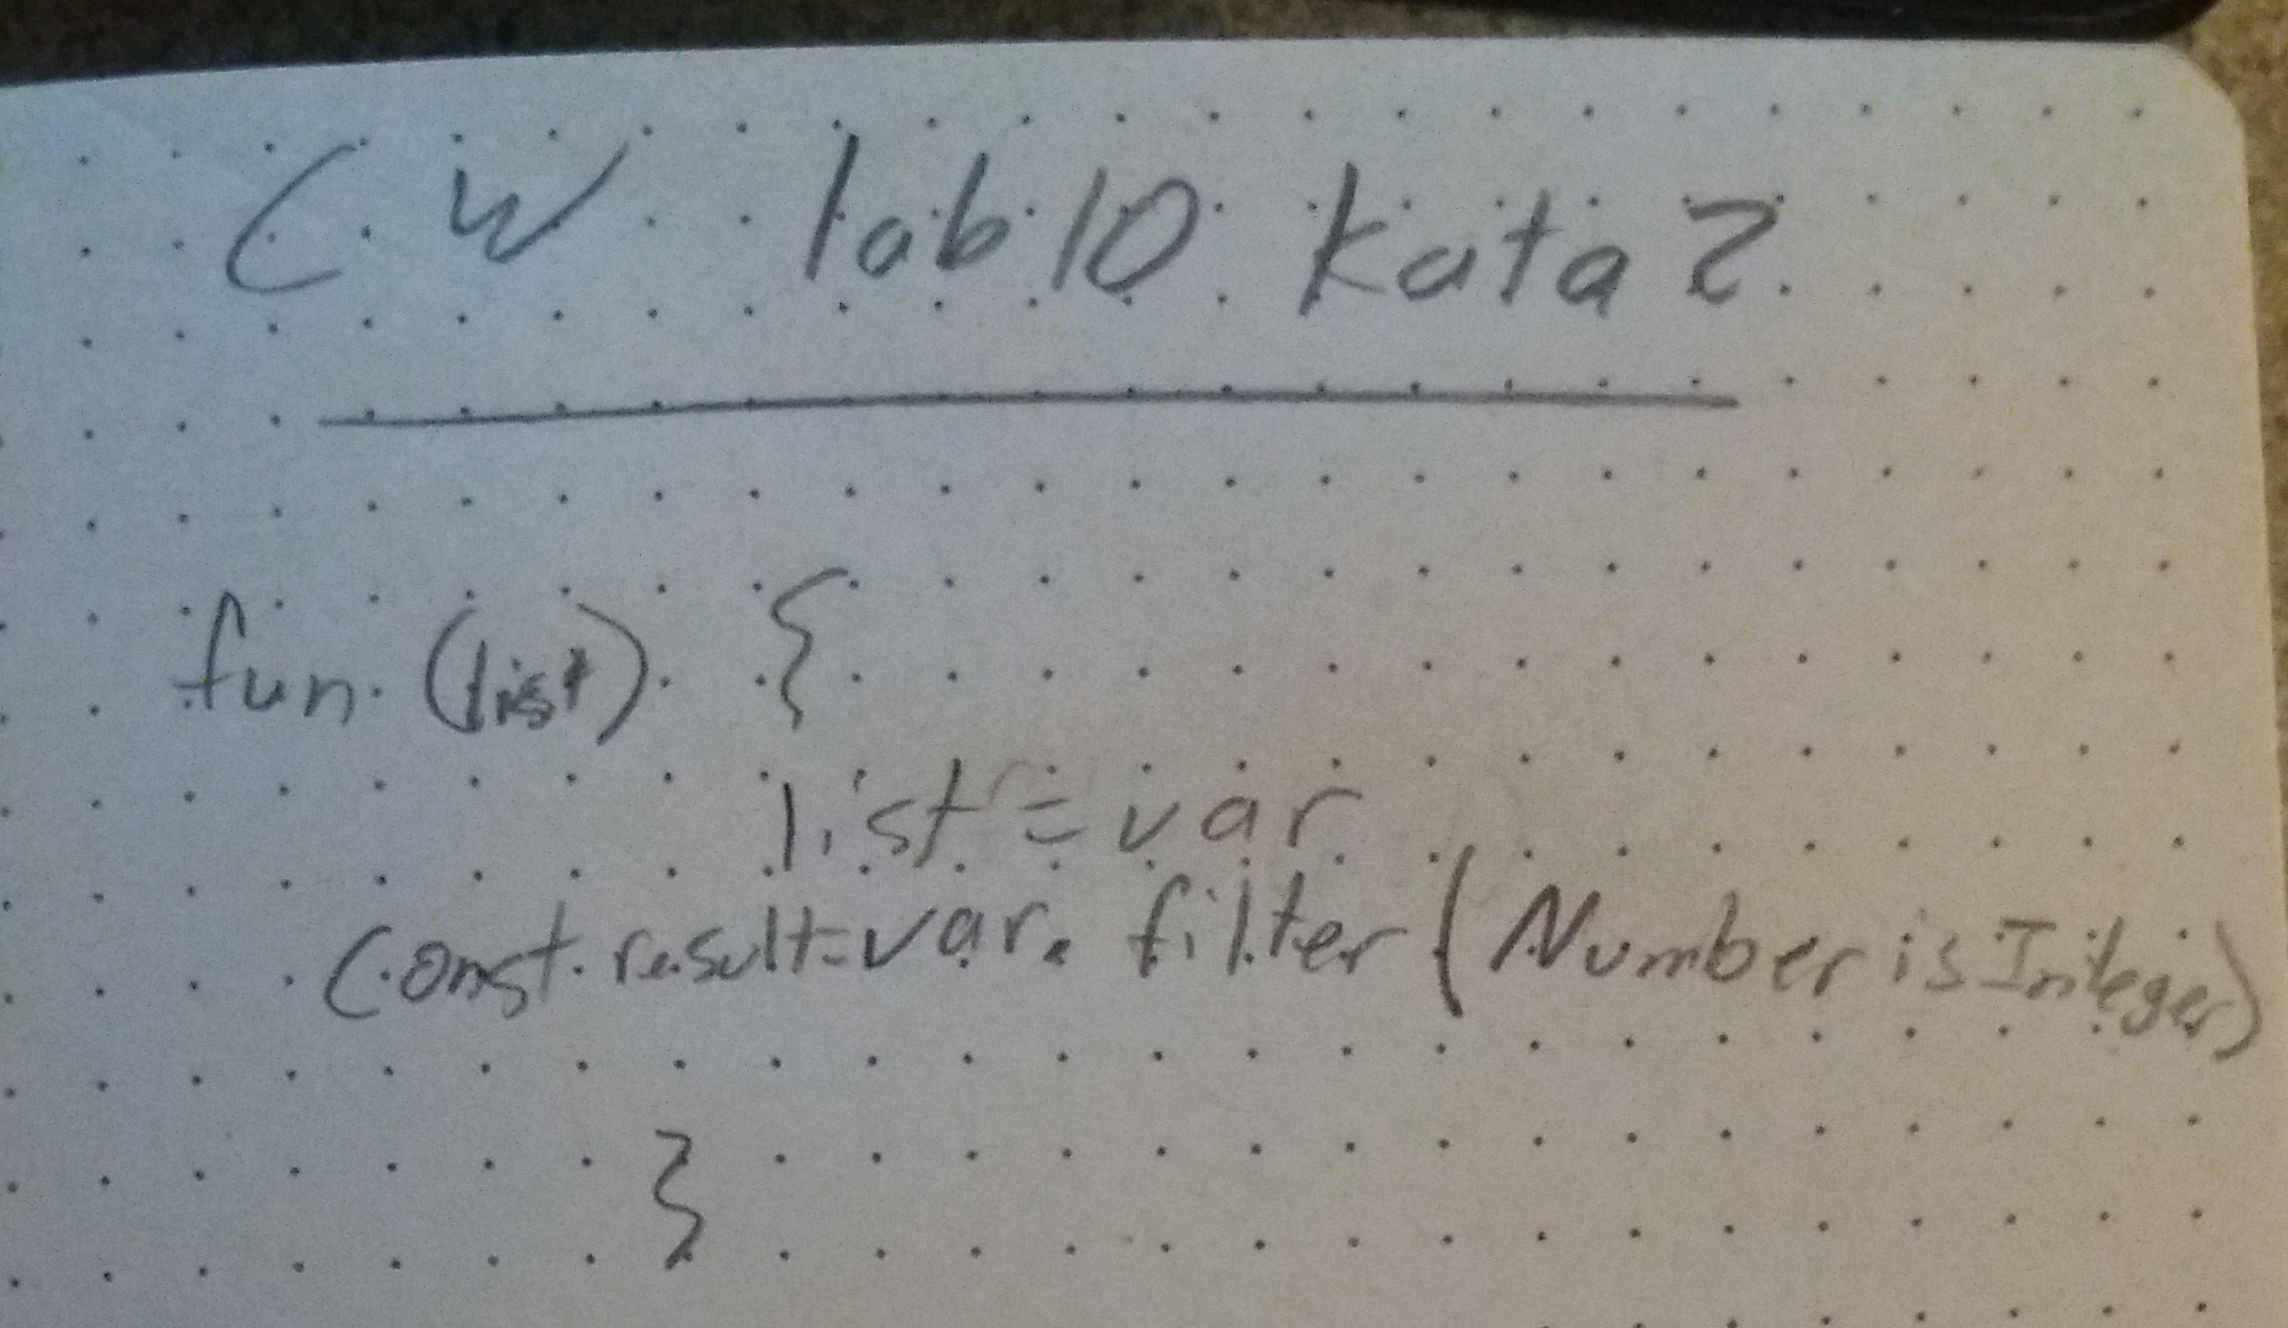 CW lab 10 kata 2
fun (list) {
list = var
const result = var. filter (Number is Integer)
}